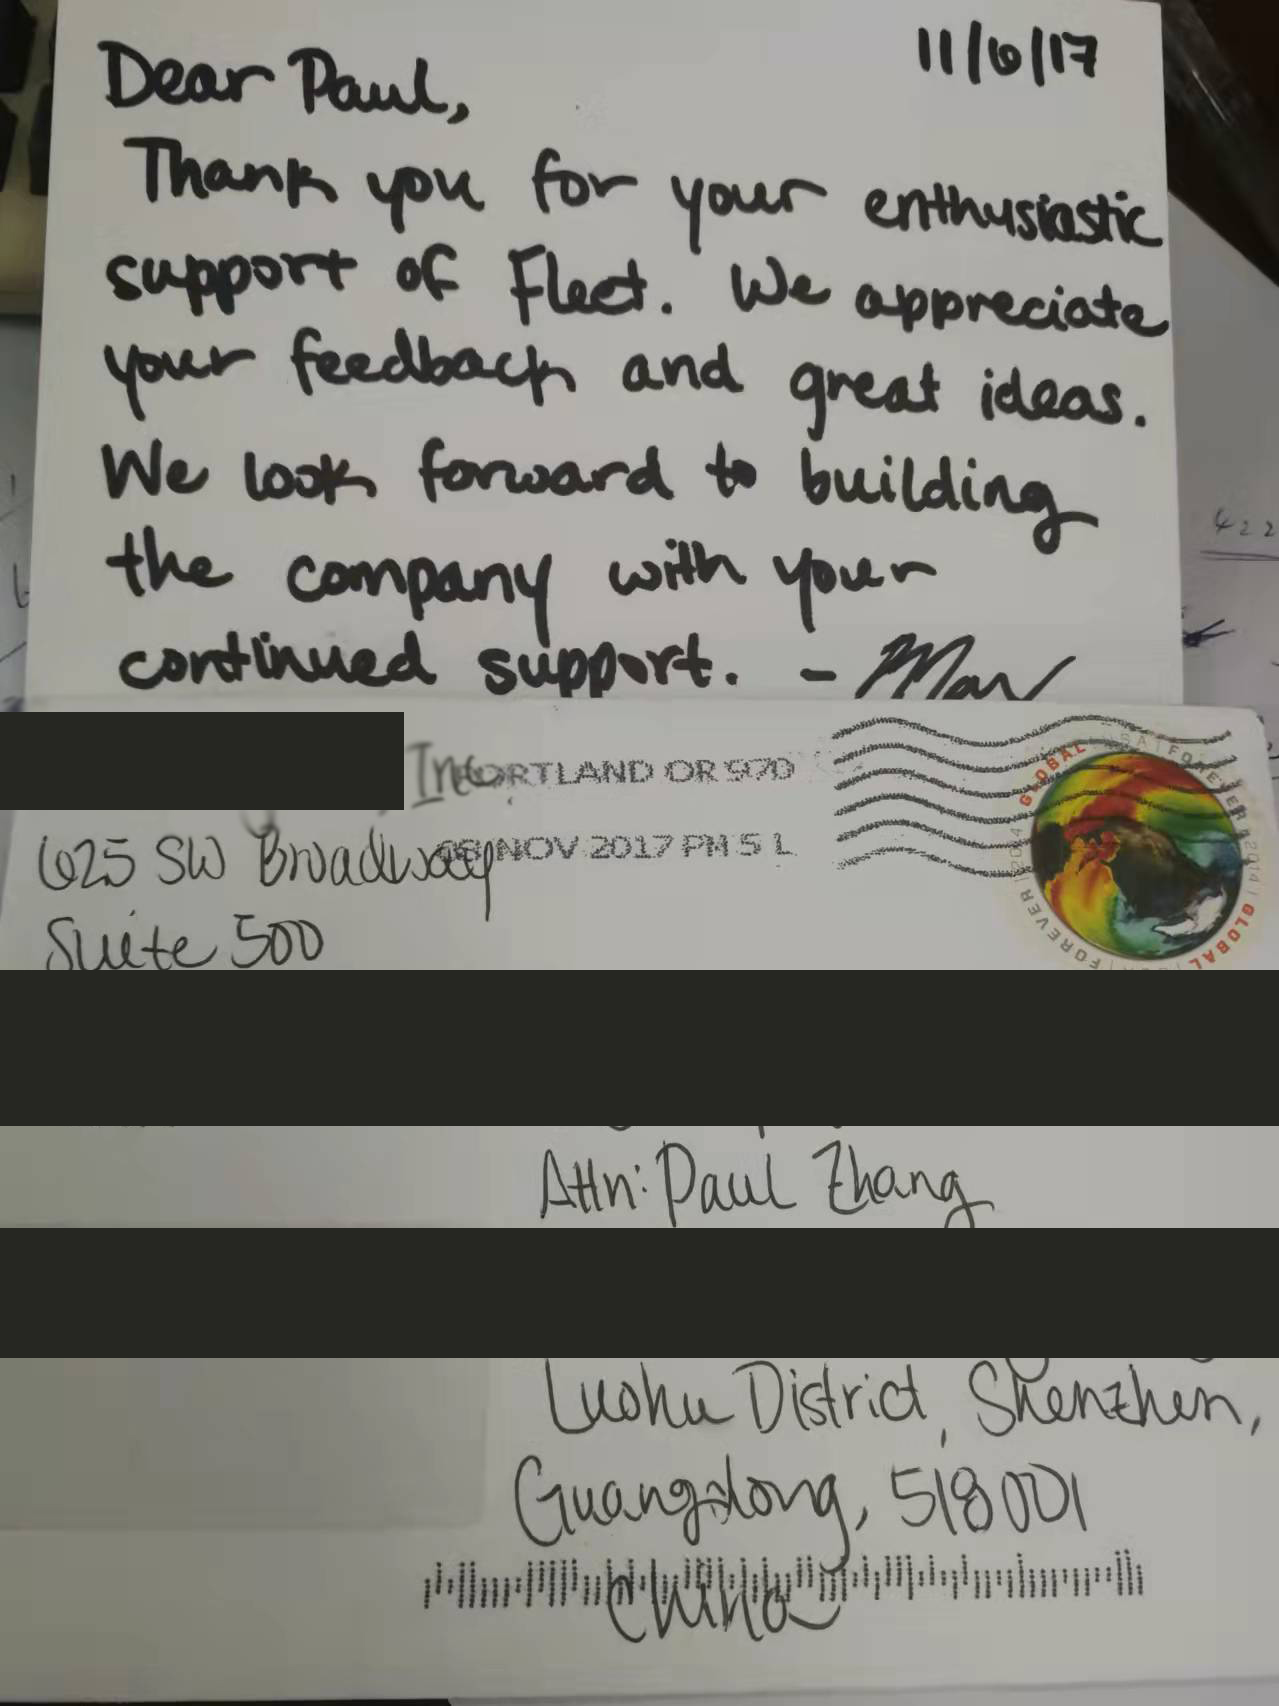 11/6/17
Dear Paul,
Thank you for your enthusiastic
support of Fleet. We appreciate
your feedback and great ideas.
We look forward to building
the company with your
continued support. –
Inc.
PORTLAND OR 970
625 SW Broadway
NOV 2017 PM 5 L
Suite 500
GLOBAL USA FOREVER 2014 GLOBAL FOREVER 2014
Attn: Paul Zhang
Luohu District, Shenzhen,
Guangdong, 518001
China
422